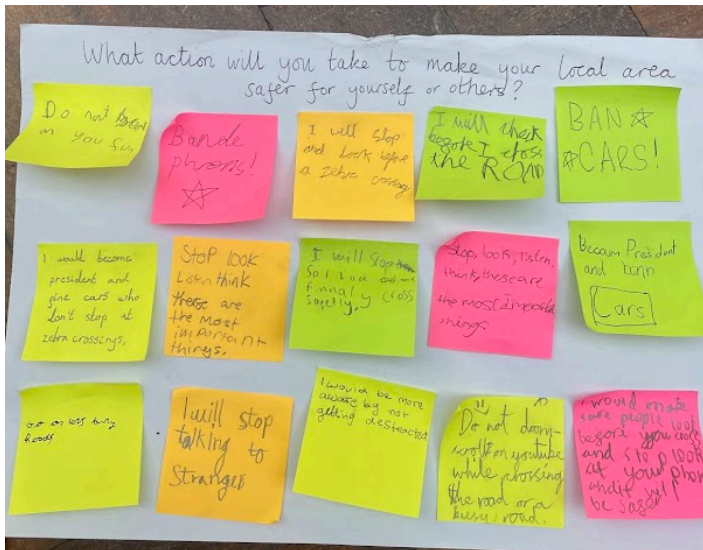 What action will you take to make your local area
safer for yourself or others?
Do not
on you
Bande
phons!
I will stop
and look before
a zebra crossing
I will check
before I cross
the ROAD
BAN
CARS!
I would become
president and
fine cars who
don't stop at
zebra crossings.
Stop look
Listen think
these are
the most
important
things.
I will stop
finnaly cross
safetly.
Stop, look, listen,
think, these are
the most important
things
Becum President
and bann
Cars
Go on less busy
Roads
I will stop
talking to
Stranger
I would be more
aware by not
getting destracted
Do not doom-
scroll on youtube
while crossing
the road or a
busy road.
I would make
sure people look
before you cross
and stop look
at your phon
be safer